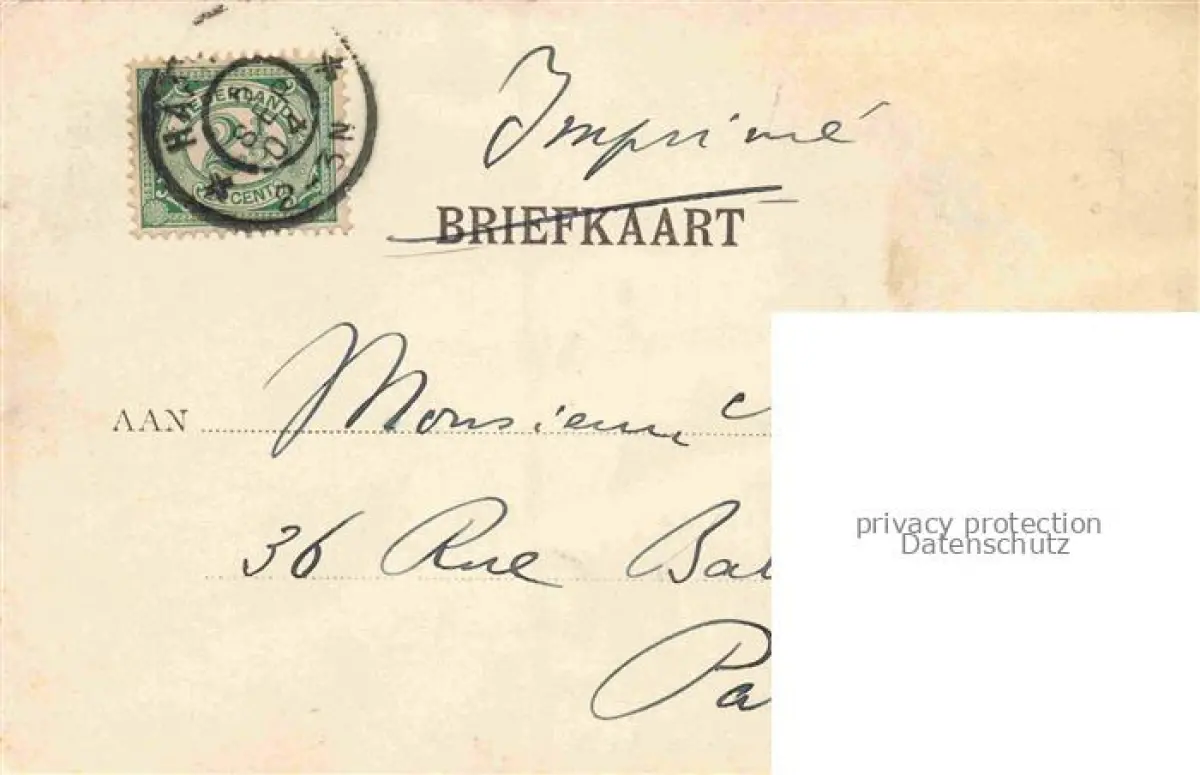 NEDERLAND
CENT
2-3N
Imprimé
BRIEFKAART
AAN Monsieur
36 Rue Bal
Pa
privacy protection
Datenschutz